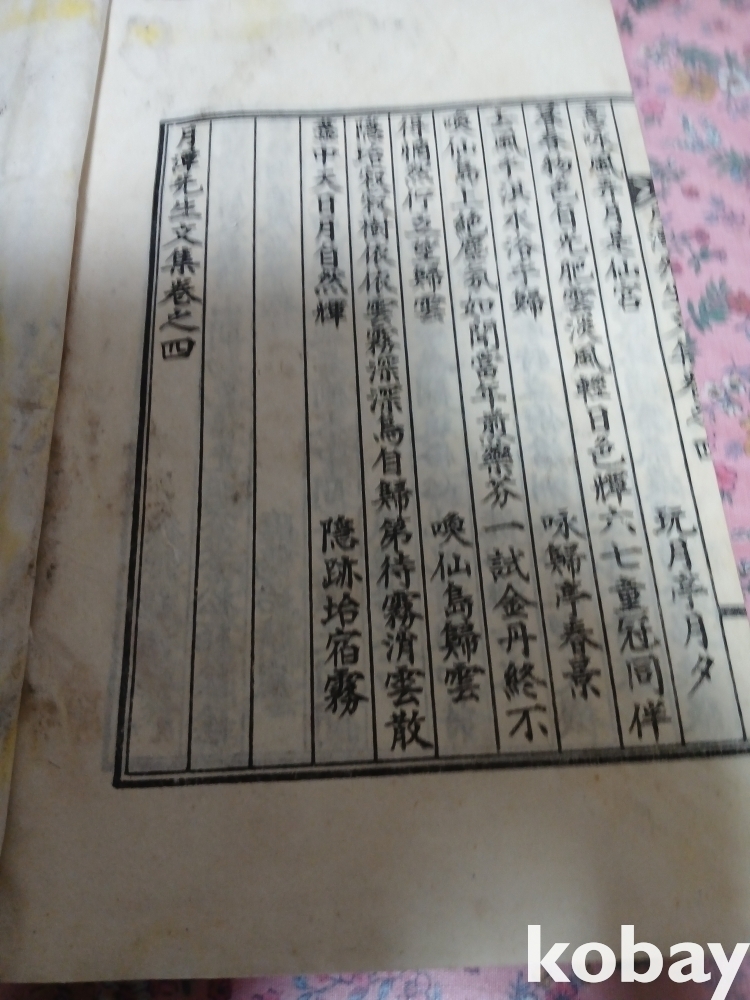 先生文集卷之四
咏風弄月是仙宮　玩月亭月夕
春物色自先肥雲淡風輕日色輝六七童冠同伴
上風乎淇水浴乎歸　咏歸亭春景
喚仙島上絶塵氛如聞當年煎藥芬一試金丹終不
得惆然行立望歸雲　喚仙島歸雲
隱坮寂寂樹依依雲霧深深鳥自歸第待霧消雲散
盡中天日月自然輝　隱跡坮宿霧
月潭先生文集卷之四
kobay